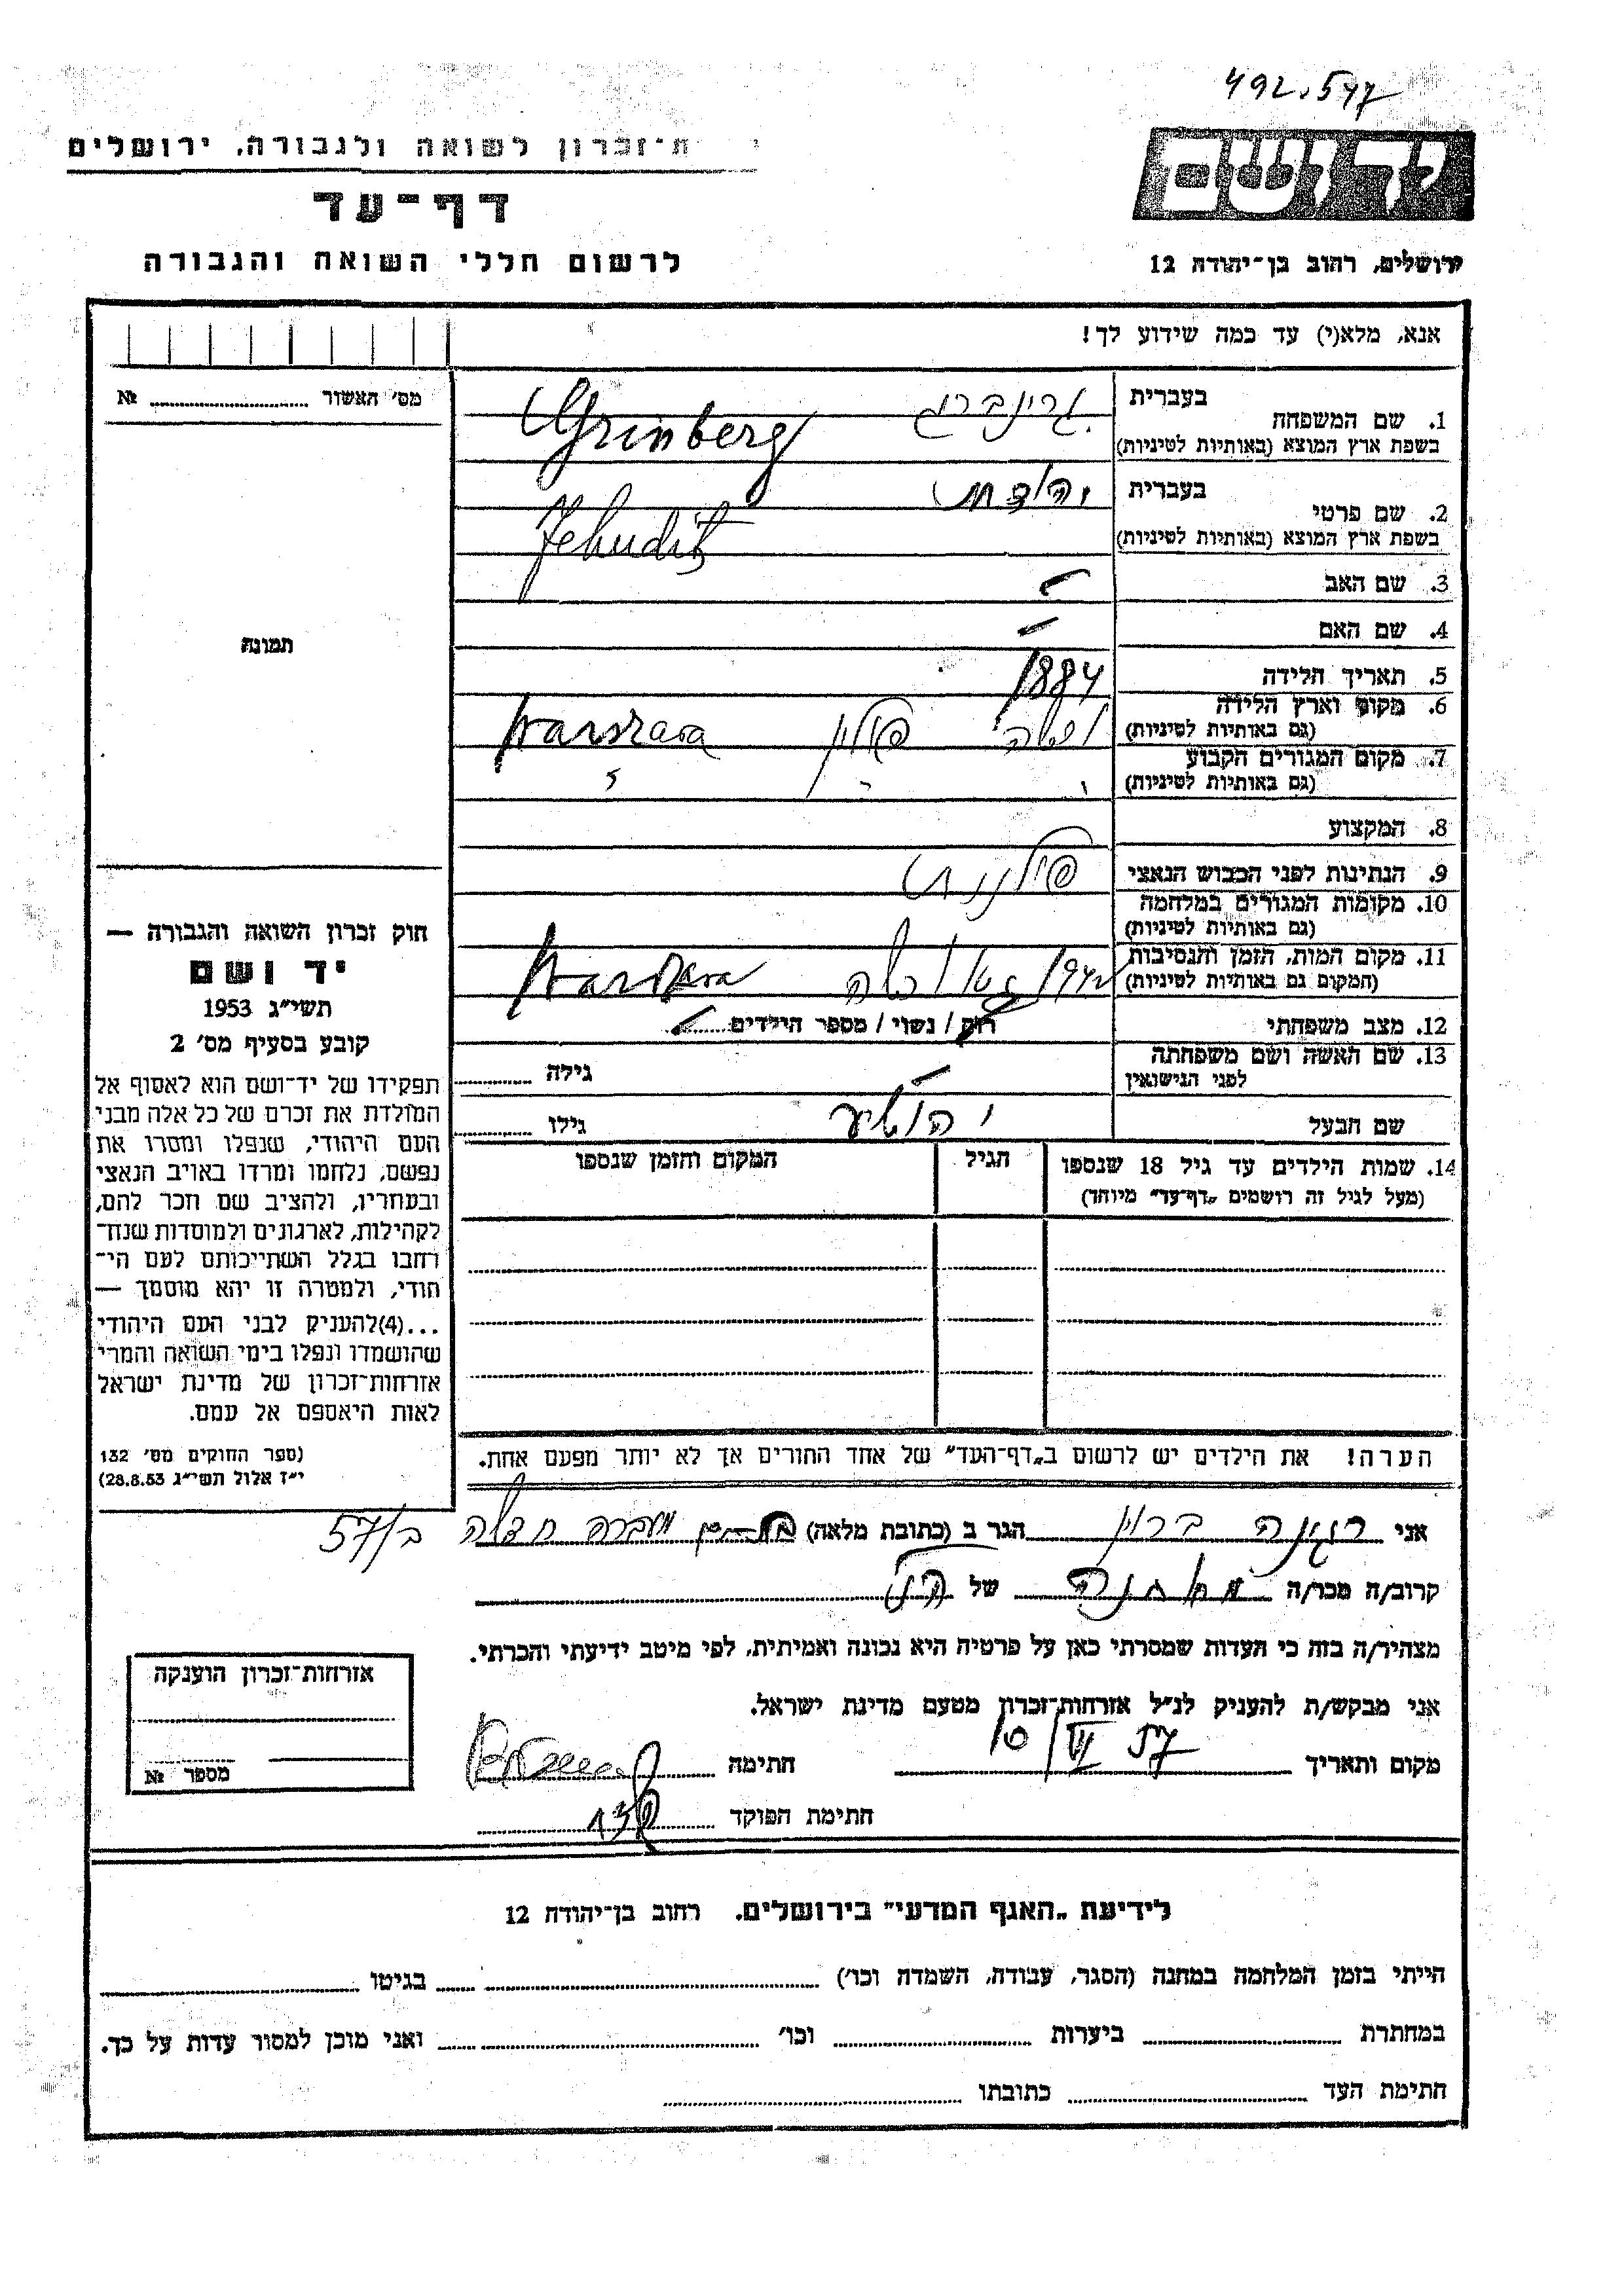 492.547
ת־זכרון לשואה ולגבורה, ירושלים
ידושם
דף־עד
לרשום חללי השואה והגבורה
ירושלים, רחוב בן־יהודה 12
אנא, מלא(י) עד כמה שידוע לך!
מס׳ האשור № 
בעברית גרינברג
1. שם המשפחה
בשפת ארץ המוצא (באותיות לטיניות) Grinberg
בעברית יהודית
2. שם פרטי
בשפת ארץ המוצא (באותיות לטיניות) Jehudit
3. שם האב
4. שם האם
תמונה
5. תאריך הלידה 1884
6. מקום וארץ הלידה
(גם באותיות לטיניות) ורשה פולין Warszawa
7. מקום המגורים הקבוע
(גם באותיות לטיניות)
8. המקצוע
9. הנתינות לפני הכבוש הנאצי פולנית
10. מקומות המגורים במלחמה
(גם באותיות לטיניות)
11. מקום המות, הזמן והנסיבות
(המקום גם באותיות לטיניות) גטו ורשה Warszawa
12. מצב משפחתי רווק / נשוי / מספר הילדים
13. שם האשה ושם משפחתה
לפני הנישואין גילה
שם הבעל יהושע גילו
14. שמות הילדים עד גיל 18 שנספו הגיל המקום והזמן שנספו
(מעל לגיל זה רושמים „דף־עד״ מיוחד)
חוק זכרון השואה והגבורה —
יד ושם
תשי״ג 1953
קובע בסעיף מס׳ 2
תפקידו של יד־ושם הוא לאסוף אל
המולדת את זכרם של כל אלה מבני
העם היהודי, שנפלו ומסרו את
נפשם, נלחמו ומרדו באויב הנאצי
ובעוזריו, ולהציב שם וזכר להם,
לקהילות, לארגונים ולמוסדות שנח־
רחבו בגלל השתייכותם לעם הי־
הודי, ולמטרה זו יהא מוסמך —
...(4)להעניק לבני העם היהודי
שהושמדו ונפלו בימי השואה והמרי
אזרחות־זכרון של מדינת ישראל
לאות היאספם אל עמם.
(ספר החוקים מס׳ 132
י״ז אלול תשי״ג 28.8.53)
הערה! את הילדים יש לרשום ב„דף־העד״ של אחד ההורים אך לא יותר מפעם אחת.
אני רגינה ברוין הגר ב (כתובת מלאה) בת-ים חברה חדשה ב/57
קרוב/ה מכר/ה של
מצהיר/ה בזה כי העדות שמסרתי כאן על פרטיה היא נכונה ואמיתית, לפי מיטב ידיעתי והכרתי.
אני מבקש/ת להעניק לנ״ל אזרחות־זכרון מטעם מדינת ישראל.
מקום ותאריך חתימה
חתימת הפוקד
אזרחות־זכרון הוענקה
מספר №
לידיעת „האגף המדעי״ בירושלים, רחוב בן־יהודה 12
הייתי בזמן המלחמה במחנה (הסגר, עבודה, השמדה וכו׳) בגיטו
במחתרת ביערות וכו׳ ואני מוכן למסור עדות על כך.
חתימת העד כתובתו